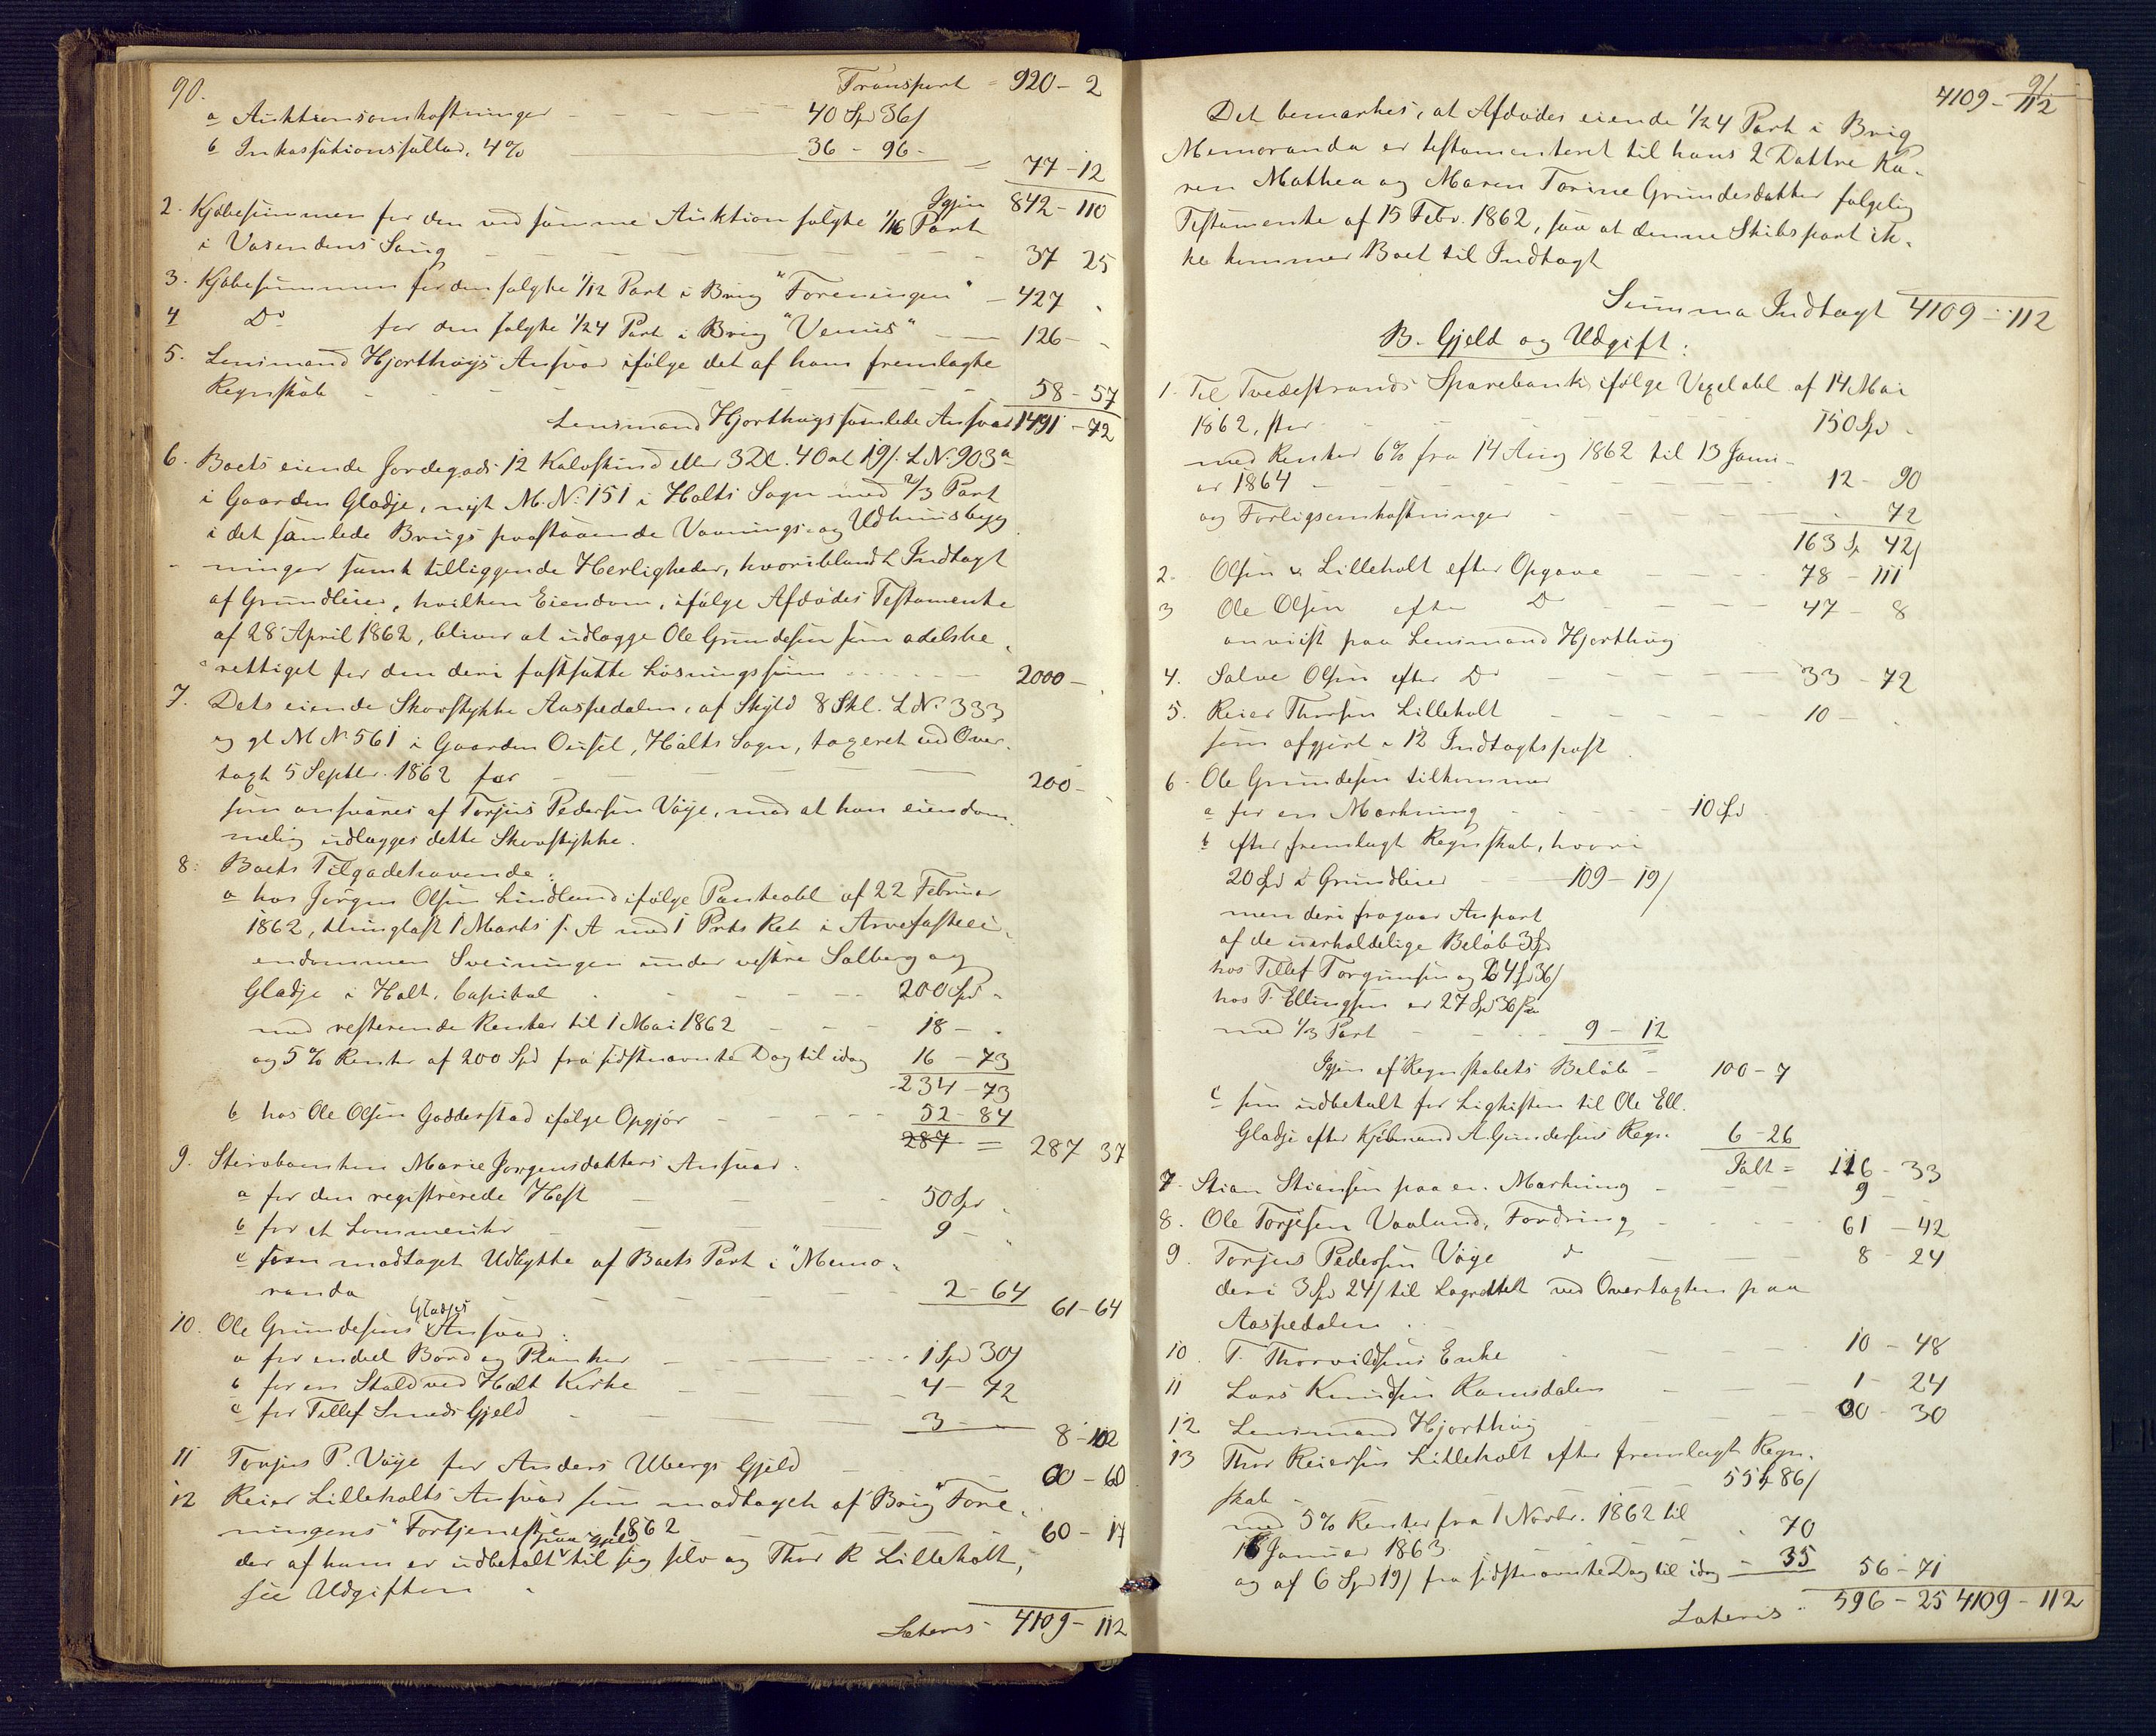 90.
Transport = 920 - 2
a Auktionsomkostninger - - - - 40 Spd 36/
b Inkassationssallær, 4% 36 - 96 - = 77 - 12
Igjen 842 - 110
2. Kjøbesummen for den ved samme Auktion solgte 1/16 Part
i Vasendens Saug - - - - - - 37 25
3. Kjøbesummen for den solgte 1/12 Part i Brig "Foreningen" - 427 -
4 Do for den solgte 1/24 Part i Brig "Venus" - 126 - -
5. Lensmand Hjorthøys Ansvar ifølge det af ham fremlagte
Regnskab - - - - - - 58 - 57
Lensmand Hjorthøys samlede Ansvar 1491 - 72
6. Boets eiende Jordegods 12 Kalvskind eller 3 Dl. 4 Ort 19/. L.No. 903a
i Gaarden Gladje, nyt M.No. 151 i Holts Sogn med 2/3 Part
i det samlede Brugs paastaaende Vaanings- og Udhuusbyg
ninger samt tilliggende Herligheder, hvoriblandt Indtægt
af Grundleier, hvilken Eiendom, ifølge Afdødes Testamente
af 28 April 1862, bliver at udlægge Ole Grundesen som odelsbe-
rettiget for den deri fastsatte Løsningssum - - - - 2000 - -
7. Dets eiende Skovstykke Aaspedalen, af Skyld 8 Skl. L No. 333
og gl M No. 561 i Gaarden Ousel, Holts Sogn, taxeret ved Over-
tagt 5 Septbr. 1862 for - - - 200 - -
som ansvares af Torjus Pedersen Vøje, mod at han eiendom-
melig udlægges dette Skovstykke.
8. Boets Tilgodehavende:
a hos Jørgen Olsen Lindland ifølge Panteobl af 22 Februar
1862, thinglæst 1 Marts s. A med 1 Prts Ret i Arvefæstei-
endommen Sveiningen under vestre Salberg og
Gladje i Holt, Capital - - - - 200 Spd -
med resterende Renter til 1 Mai 1862 - - - 18 - -
og 5% Renter af 200 Spd fra sidstnævnte Dag til idag 16 - 73
234 - 73
b hos Ole Olsen Godderstad ifølge Opgjør - - - 52 - 84
287 = 287 37
9. Stervboenken Marie Jørgensdatters Ansvar:
a for den registrerede Hest - - - 50 Spd -
b for et Lommeuhr - - 9 - "
c som modtaget Udbytte af Boets Part i "Memo-
randa - - - - 2 - 64 61 - 64
10. Ole Grundesens Gladjes Ansvar:
a for endeel Bord og Planker - - - 1 Spd 30/
b for en Stald ved Holt Kirke - - 4 - 72
c for Tellef Smeds Gjeld - - 3 - - 8 - 102
11 Torjus P. Vøje for Anders Ubergs Gjeld - - - 60 - 60
12 Reier Lilleholts Ansvar som modtaget af Brig "Fore-
ningens" Fortjeneste 1862 60 - 17
der af ham er udbetalt paa Gjeld til sig selv og Thor R Lilleholt,
see Udgiften -
Lateris - 4109 - 112
91
4109 - 112
Det bemærkes, at Afdødes eiende 1/24 Part i Brig
Memoranda er testamenteret til hans 2 Døttre Ka-
ren Mathea og Maren Torine Grundesdatter følgelig
Testamente af 15 Febr. 1862, saa at denne Skibspart ik-
ke kommer Boet til Indtægt
Summa Indtægt 4109 - 112
B. Gjeld og Udgift:
1. Til Tvedestrands Sparebank ifølge Vexelobl af 14 Mai
1862, stor - - - - 150 Spd -
med Renter 6% fra 14 Aug 1862 til 13 Janu-
ar 1864 - - - - - 12 - 90
og Forligsomkostninger - - - - 72
163 Sp 42/
2. Olsen & Lilleholt efter Opgave - - - - 78 - 111
3 Ole Olsen efter Do - - - - 47 - 8
anviist paa Lensmand Hjorthøy
4. Salve Olsen efter Do - - - - 33 - 72
5. Reier Thorsen Lilleholt - - - - 10 - -
som afgjort i 12 Indtægtspost
6. Ole Grundesen tilkommer
a for en Mærkning - - - - 10 Spd
b efter fremlagt Regnskab, hvori
20 Spd i Grundleier - - 109 - 19/
men deri fragaar Anpart
af de uerholdelige Beløb 3 Spd
hos Tellef Torgrimsen og 24 Spd 36/
hos T. Ellingsen er 27 Spd 36 Sk
med 1/3 Part - - - - 9 - 12
Igjen af Regnskabets Beløb - 100 - 7
c som udbetalt for Ligkisten til Ole Ell.
Gladje efter Kjøbmand A. Gundersens Regn. 6 - 26
Ialt = 116 - 33
7. Stian Stiansen paa en Mærkning - - - 9 -
8. Ole Torjesen Vaaland, Fordring - - - - 61 - 42
9. Torjus Pedersen Vøje d - - - 8 - 24
deri 3 Spd 24/ til Lagrettet ved Overtagten paa
Aaspedalen - -
10. T. Thorvildsens Enke - - - - 10 - 48
11 Lars Knudsen Ramsdalen - - - 1 - 24
12 Lensmand Hjorthøy - - - 00 - 30
13 Thor Reiersen Lilleholt efter fremlagt Regn-
skab - 55 Sp 86/
med 5% Renter fra 1 Novbr. 1862 til
16 Januar 1863 - - 70
og af 6 Spd 19/ fra sidstnævnte Dag til idag - 35 56 - 71
Lateris - 596 - 25 4109 - 112